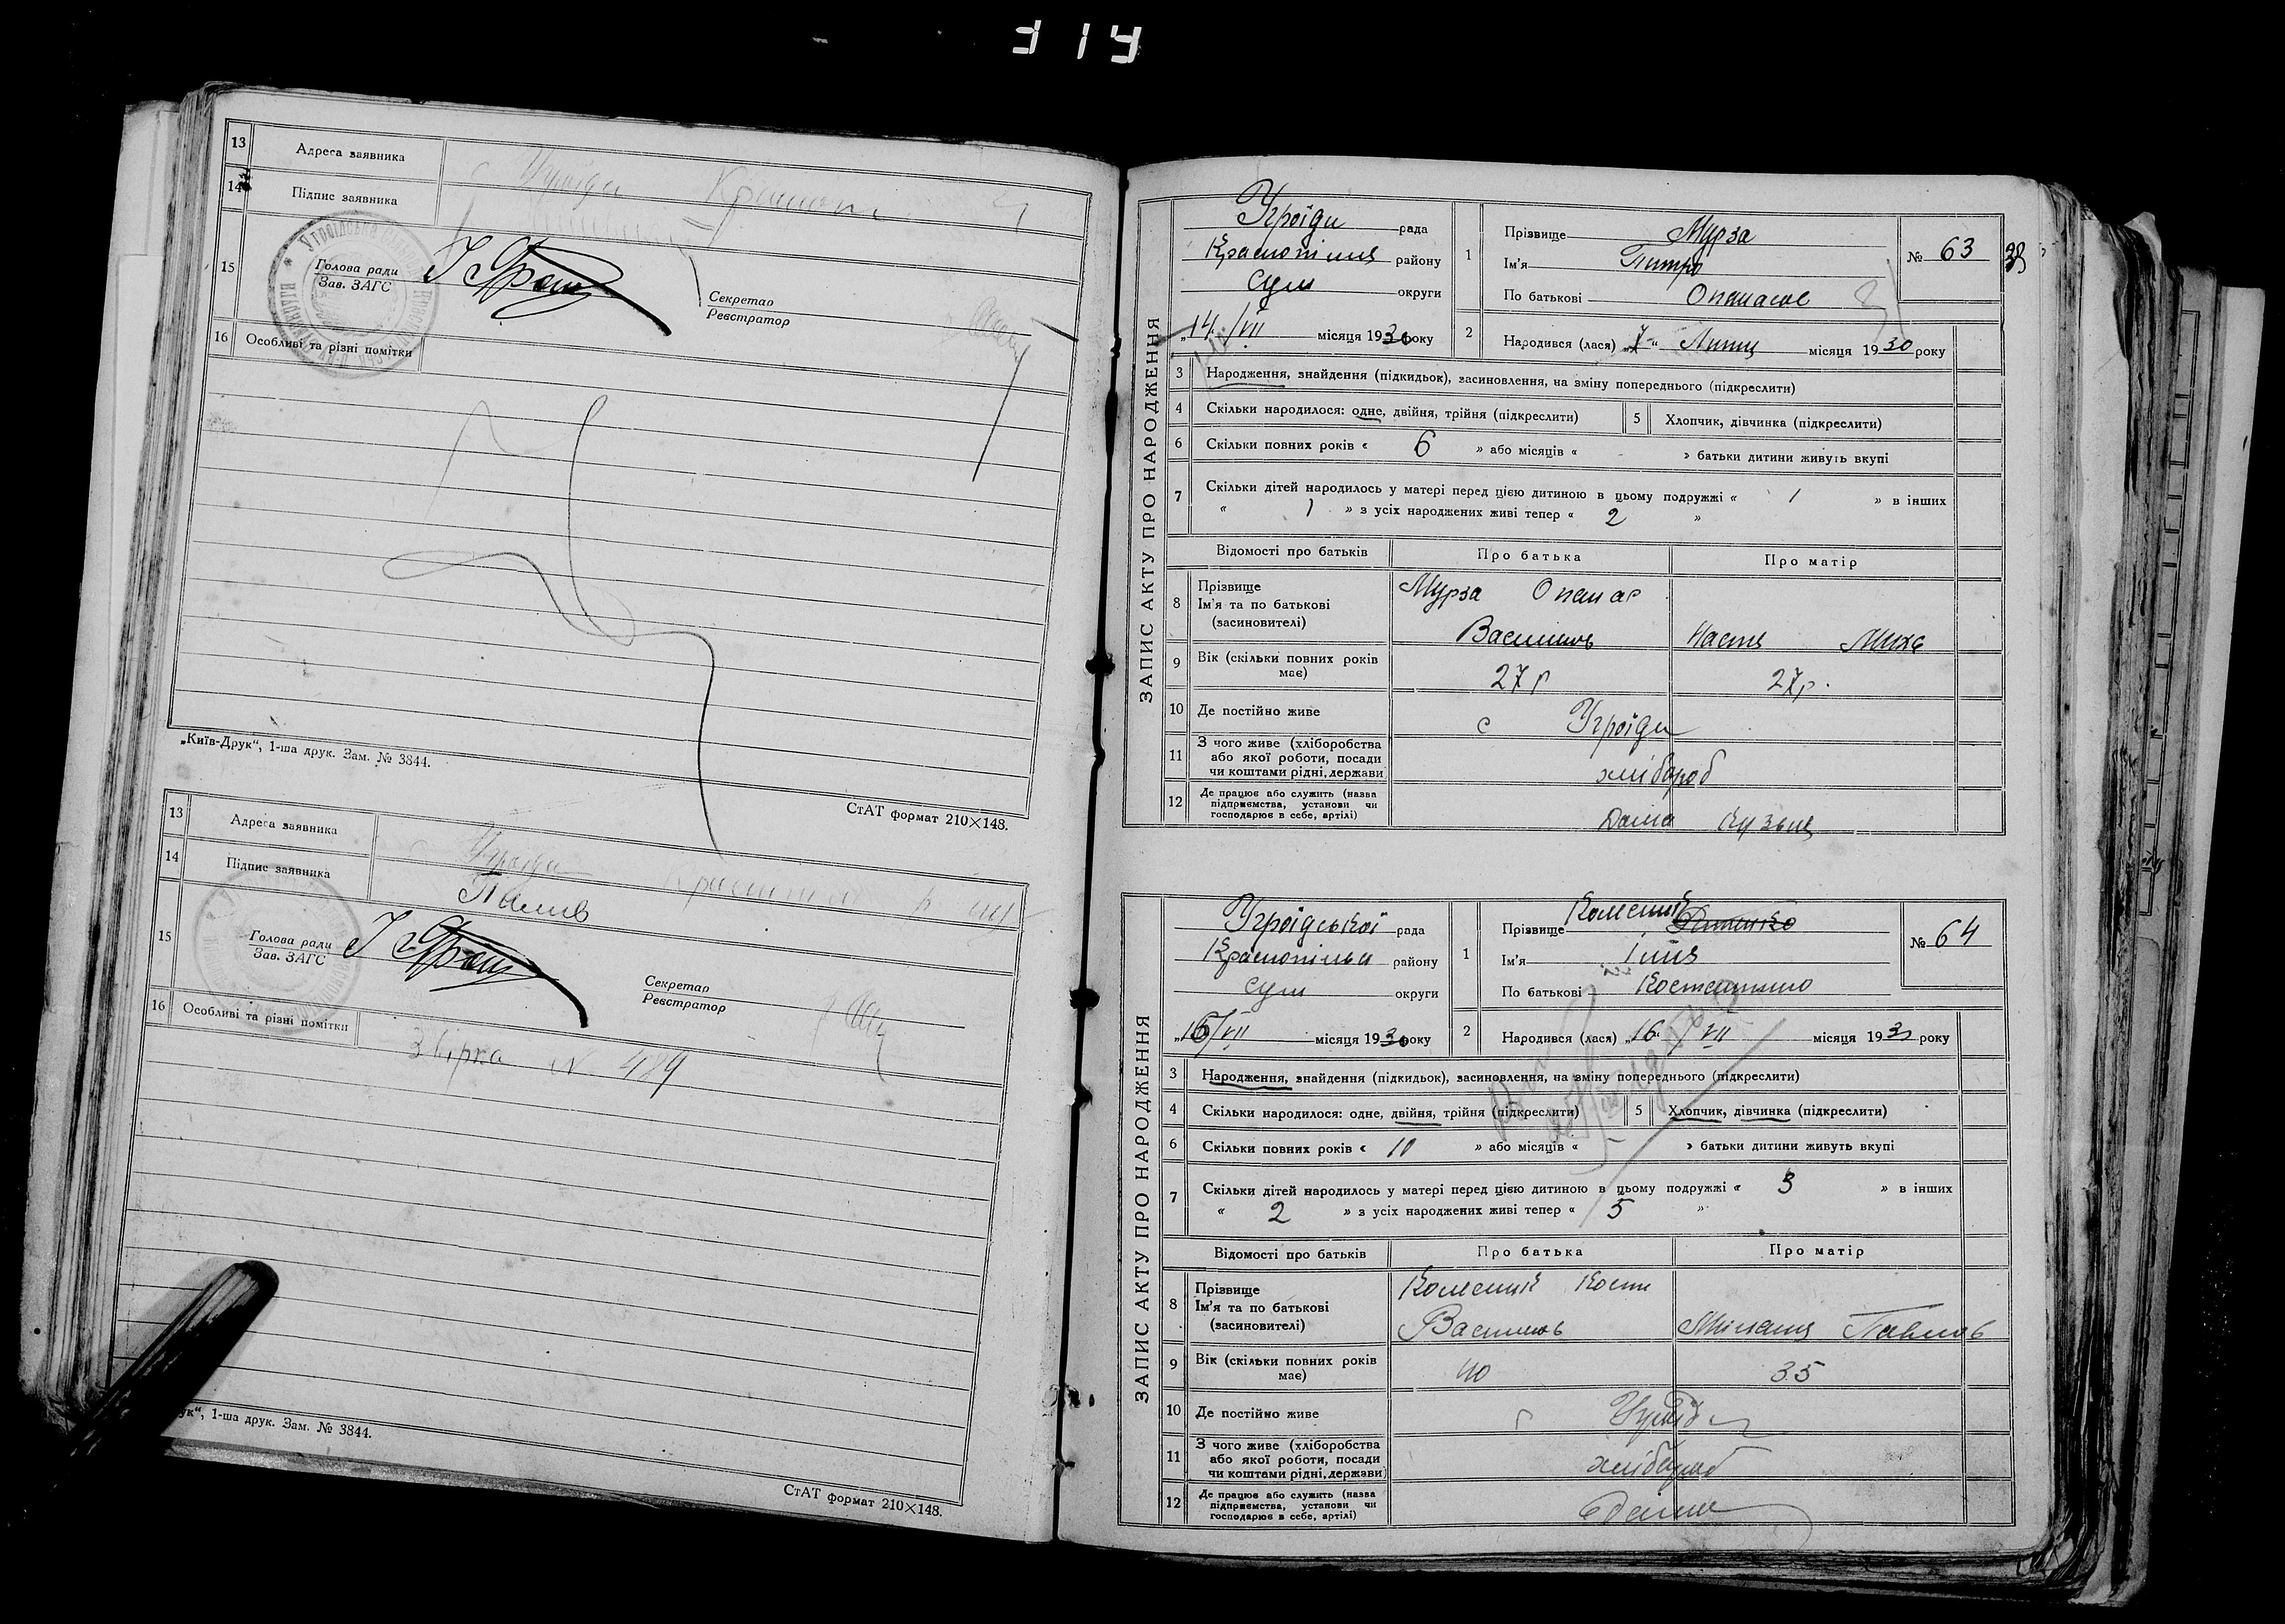 13 Адреса заявника с Угроїди
14 Підпис заявника
15 Голова ради
Зав. ЗАГС
Секретар
Реєстратор
16 Особливі та різні помітки
„Київ-Друк“, 1-ша друк. Зам. № 3844.
СтАТ формат 210×148.
13 Адреса заявника с Угроїди
14 Підпис заявника
15 Голова ради
Зав. ЗАГС
Секретар
Реєстратор
16 Особливі та різні помітки
Звірка № 489
ук“, 1-ша друк. Зам. № 3844.
СтАТ формат 210×148.
ЗАПИС АКТУ ПРО НАРОДЖЕННЯ
Угроїди рада
Краснопілля району
Сум округи
„14“/VII місяця 1930 року
1 Прізвище Мурза
Ім'я Питро
По батькові Опанасов
№ 63
2 Народився (лася) „7“ Липц місяця 1930 року
3 Народження, знайдення (підкидьок), засиновлення, на зміну попереднього (підкреслити)
4 Скільки народилося: одне, двійня, трійня (підкреслити) 5 Хлопчик, дівчинка (підкреслити)
6 Скільки повних років « 6 » або місяців « - » батьки дитини живуть вкупі
7 Скільки дітей народилось у матері перед цією дитиною в цьому подружжі « 1 » в інших
« 1 » з усіх народжених живі тепер « 2 »
Відомості про батьків Про батька Про матір
8 Прізвище
Ім'я та по батькові
(засиновителі)
Мурза Опанас
Васильов Настя Михе
9 Вік (скільки повних років
має) 27 р 27 р.
10 Де постійно живе с Угроїди
11 З чого живе (хліборобства
або якої роботи, посади
чи коштами рідні, держави) хлібороб
12 Де працює або служить (назва
підприємства, установи чи
господарює в себе, артілі)
ЗАПИС АКТУ ПРО НАРОДЖЕННЯ
Угроїдської рада
Краснопілля району
Сум округи
„16“/VII місяця 1930 року
1 Прізвище Колесник
Ім'я
По батькові
№ 64
2 Народився (лася) „16“/VII місяця 193 року
3 Народження, знайдення (підкидьок), засиновлення, на зміну попереднього (підкреслити)
4 Скільки народилося: одне, двійня, трійня (підкреслити) 5 Хлопчик, дівчинка (підкреслити)
6 Скільки повних років « 10 » або місяців « » батьки дитини живуть вкупі
7 Скільки дітей народилось у матері перед цією дитиною в цьому подружжі « 3 » в інших
« 2 » з усіх народжених живі тепер « 5 »
Відомості про батьків Про батька Про матір
8 Прізвище
Ім'я та по батькові
(засиновителі)
Колесник Кост
Васильов Павлов
9 Вік (скільки повних років
має) 40 35
10 Де постійно живе с Угроїди
11 З чого живе (хліборобства
або якої роботи, посади
чи коштами рідні, держави) хлібороб
12 Де працює або служить (назва
підприємства, установи чи
господарює в себе, артілі)